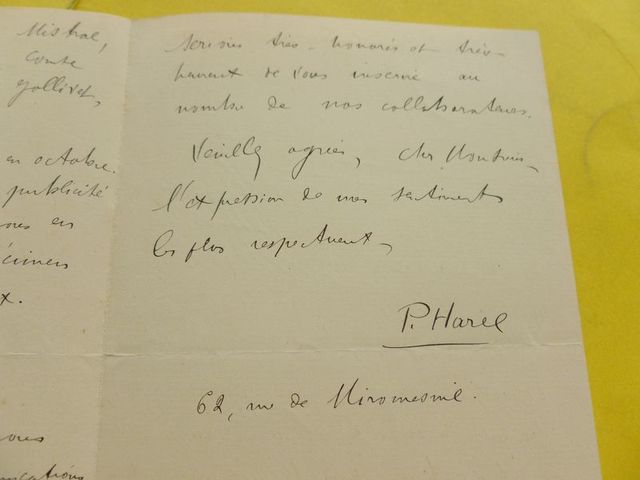 Mistral,
comte
Gollivet,
en octobre.
publicité
en
x.
serions très-honorés et très-
heureux de vous inscrire au
nombre de nos collaborateurs.
Veuillez agréer, cher Monsieur,
l'expression de mes sentiments
les plus respectueux.
P. Harel
62, rue de Miromesnil.